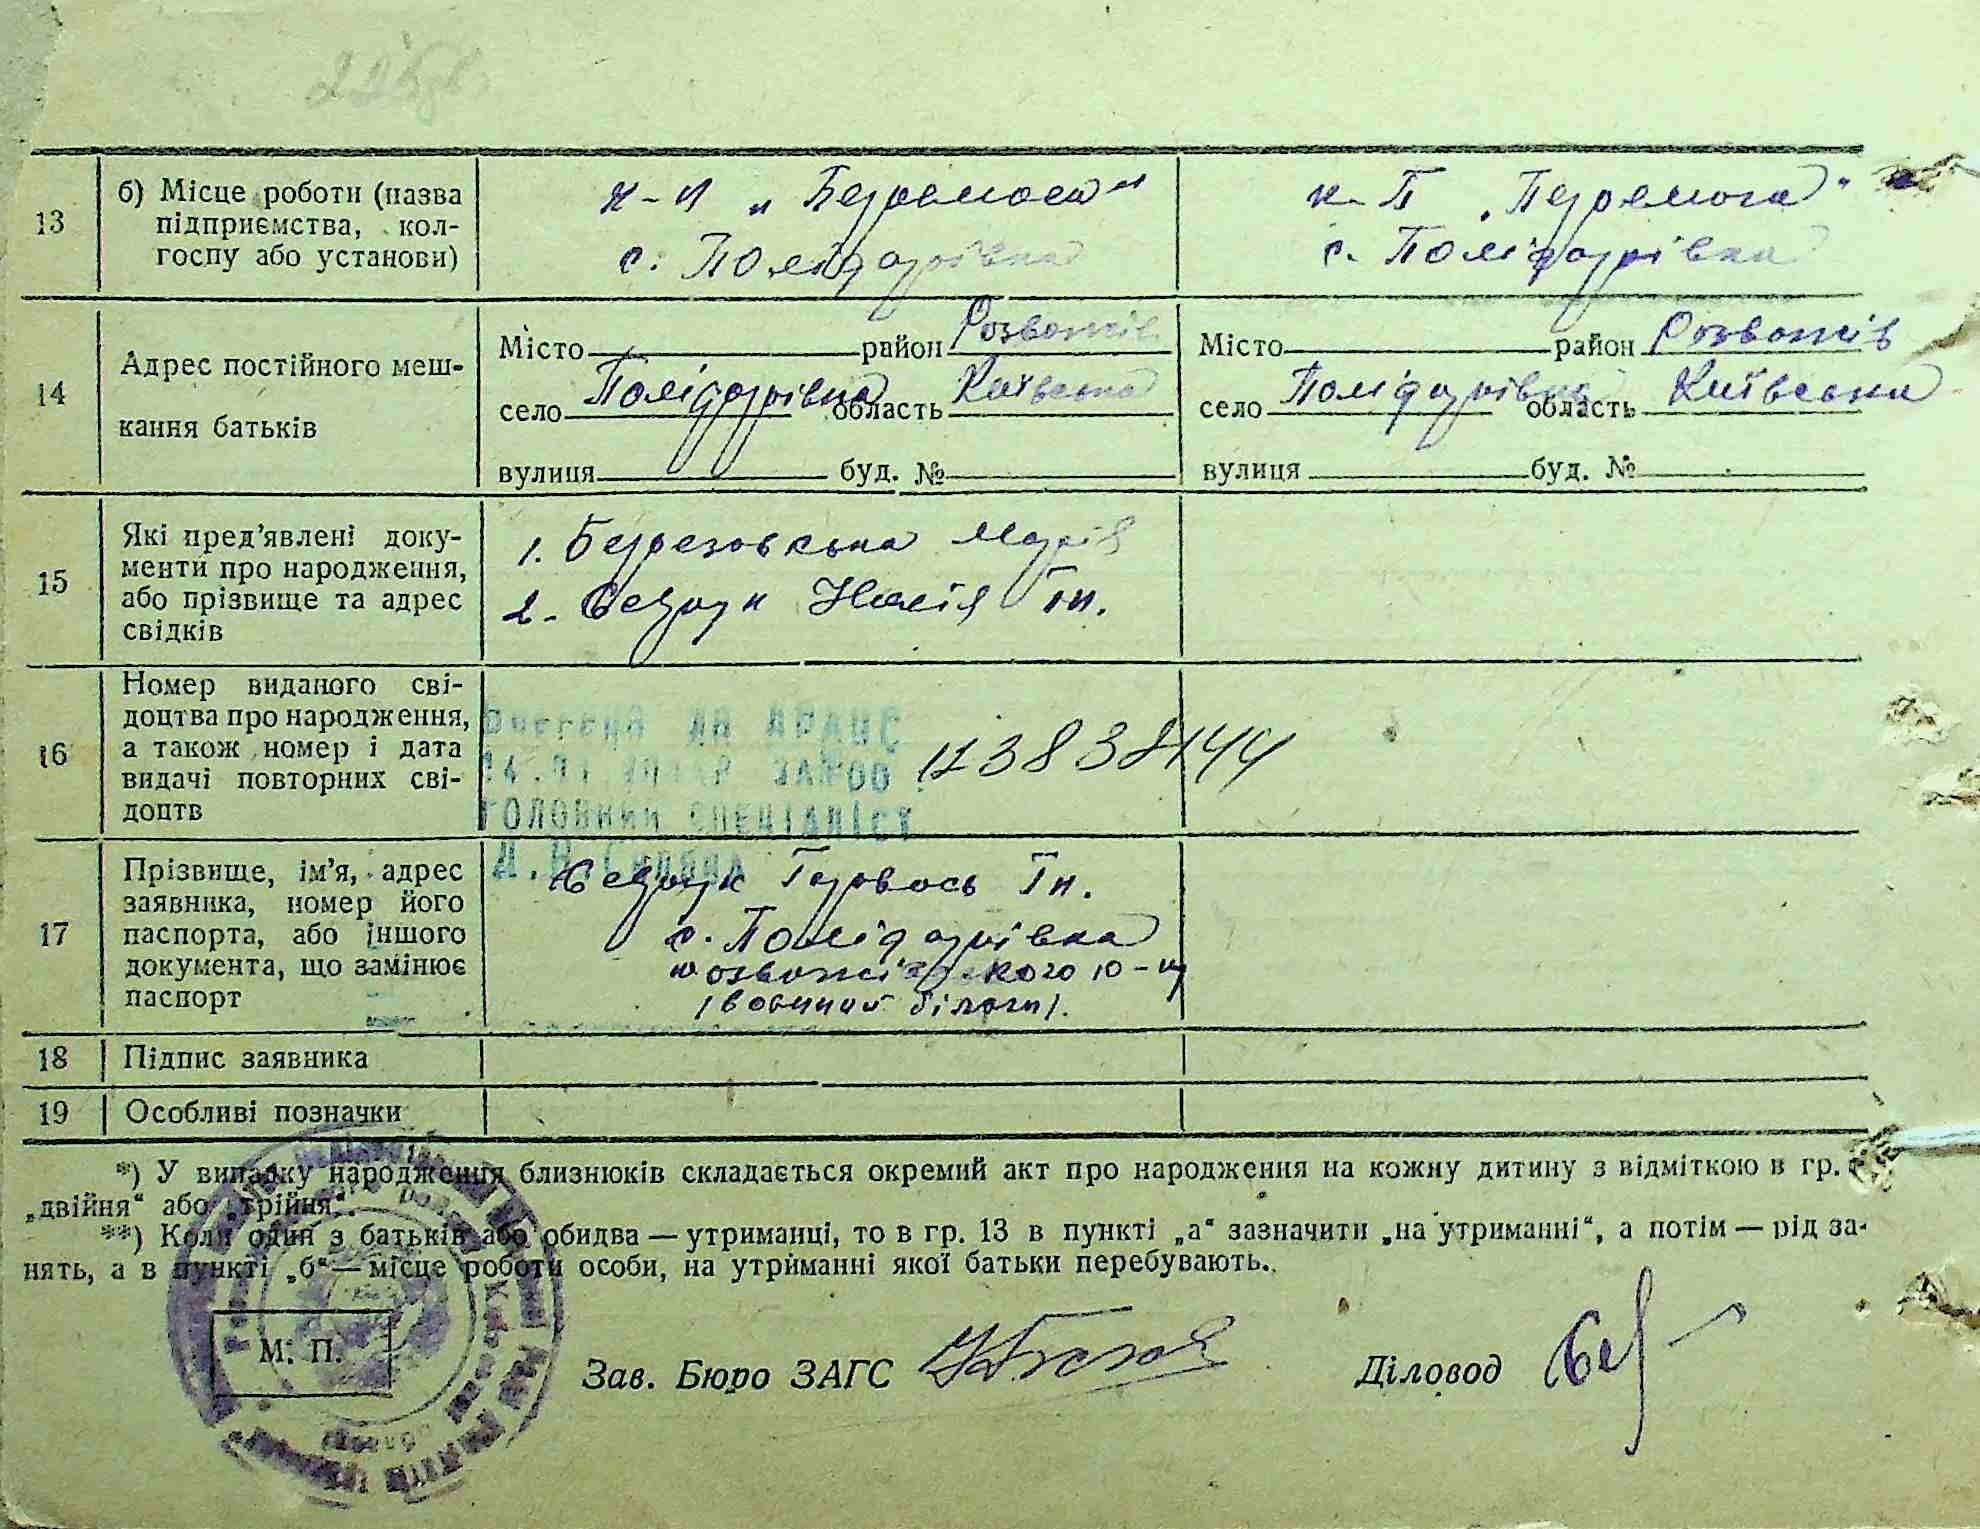 13
б) Місце роботи (назва
підприємства, кол-
госпу або установи)
с. Поліфарівка
к-п „Перемога"
с. Поліфарівка
14
Адрес постійного меш-
кання батьків
Місто район Розважів
село Поліфарівка область Київська
вулиця буд. №
Місто район Розважів
село Поліфарівка область Київська
вулиця буд. №
15
Які пред'явлені доку-
менти про народження,
або прізвище та адрес
свідків
1. Березовська Марія
2.
16
Номер виданого сві-
доцтва про народження,
а також номер і дата
видачі повторних сві-
доцтв
ГОЛОВНИЙ СПЕЦІАЛІСТ
17
Прізвище, ім'я, адрес
заявника, номер його
паспорта, або іншого
документа, що замінює
паспорт
с. Поліфарівка
18
Підпис заявника
19
Особливі позначки
*) У випадку народження близнюків складається окремий акт про народження на кожну дитину з відміткою в гр.
„двійня“ або „трійня“.
**) Коли один з батьків або обидва — утриманці, то в гр. 13 в пункті „а“ зазначити „на утриманні“, а потім — рід за-
нять, а в пункті „б“ — місце роботи особи, на утриманні якої батьки перебувають.
М. П.
Зав. Бюро ЗАГС
Діловод